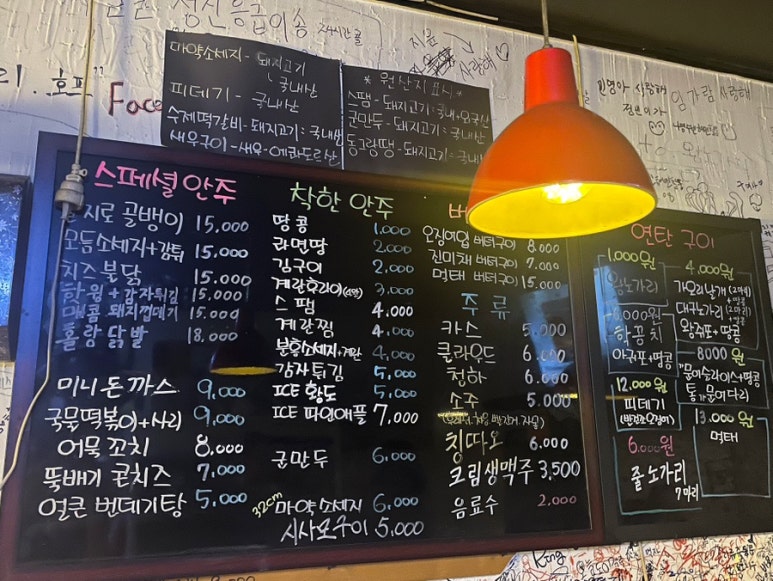 정신응급이송
24시간콜
지은
사랑해
리. 호프"
Face
마약소세지 - 돼지고기
국내산
피데기 - 국내산
수제떡갈비 - 돼지고기 : 국내산
새우구이 - 새우 - 에콰도르산
* 원산지 표시 *
스팸 - 돼지고기 : 국내+외국산
군만두 - 돼지고기 : 국내산
동그랑땡 - 돼지고기 : 국내산
스페셜 안주
지로 골뱅이 15,000
모듬소세지+감튀 15,000
치즈 부닭 15,000
핫윙+감자튀김 15,000
매콤 돼지껍데기 15,000
홀랑 닭발 18,000
미니돈까스 9,000
국물떡볶이+사리 9,000
어묵 꼬치 8,000
뚝배기 콘치즈 7,000
얼큰 번데기탕 5,000
착한 안주
땅콩 1,000
라면땅 2,000
김구이 2,000
계란후라이 3,000
스팸 4,000
계란찜 4,000
분홍소세지+계란 4,000
감자튀김 5,000
ICE 황도 5,000
ICE 파인애플 7,000
군만두 6,000
32cm 마약소세지 6,000
시사모구이 5,000
버
오징어입 버터구이 8,000
진미채 버터구이 7,000
먹태 버터구이 15,000
주류
카스 5,000
클라우드 6,000
청하 6,000
소주 5,000
칭따오 6,000
크림생맥주 3,500
음료수 2,000
연탄 구이
1,000원
왕노가리
6,000원
학꽁치
아귀포+땅콩
12,000원
피데기
(반건조오징어)
6,000원
줄노가리
7마리
4,000원
가오리날개 (2마리)
+땅콩
대구노가리 (2마리)
+땅콩
왕쥐포+땅콩
8000원
"문어슬라이스+땅콩
통문어다리
13,000원
먹태